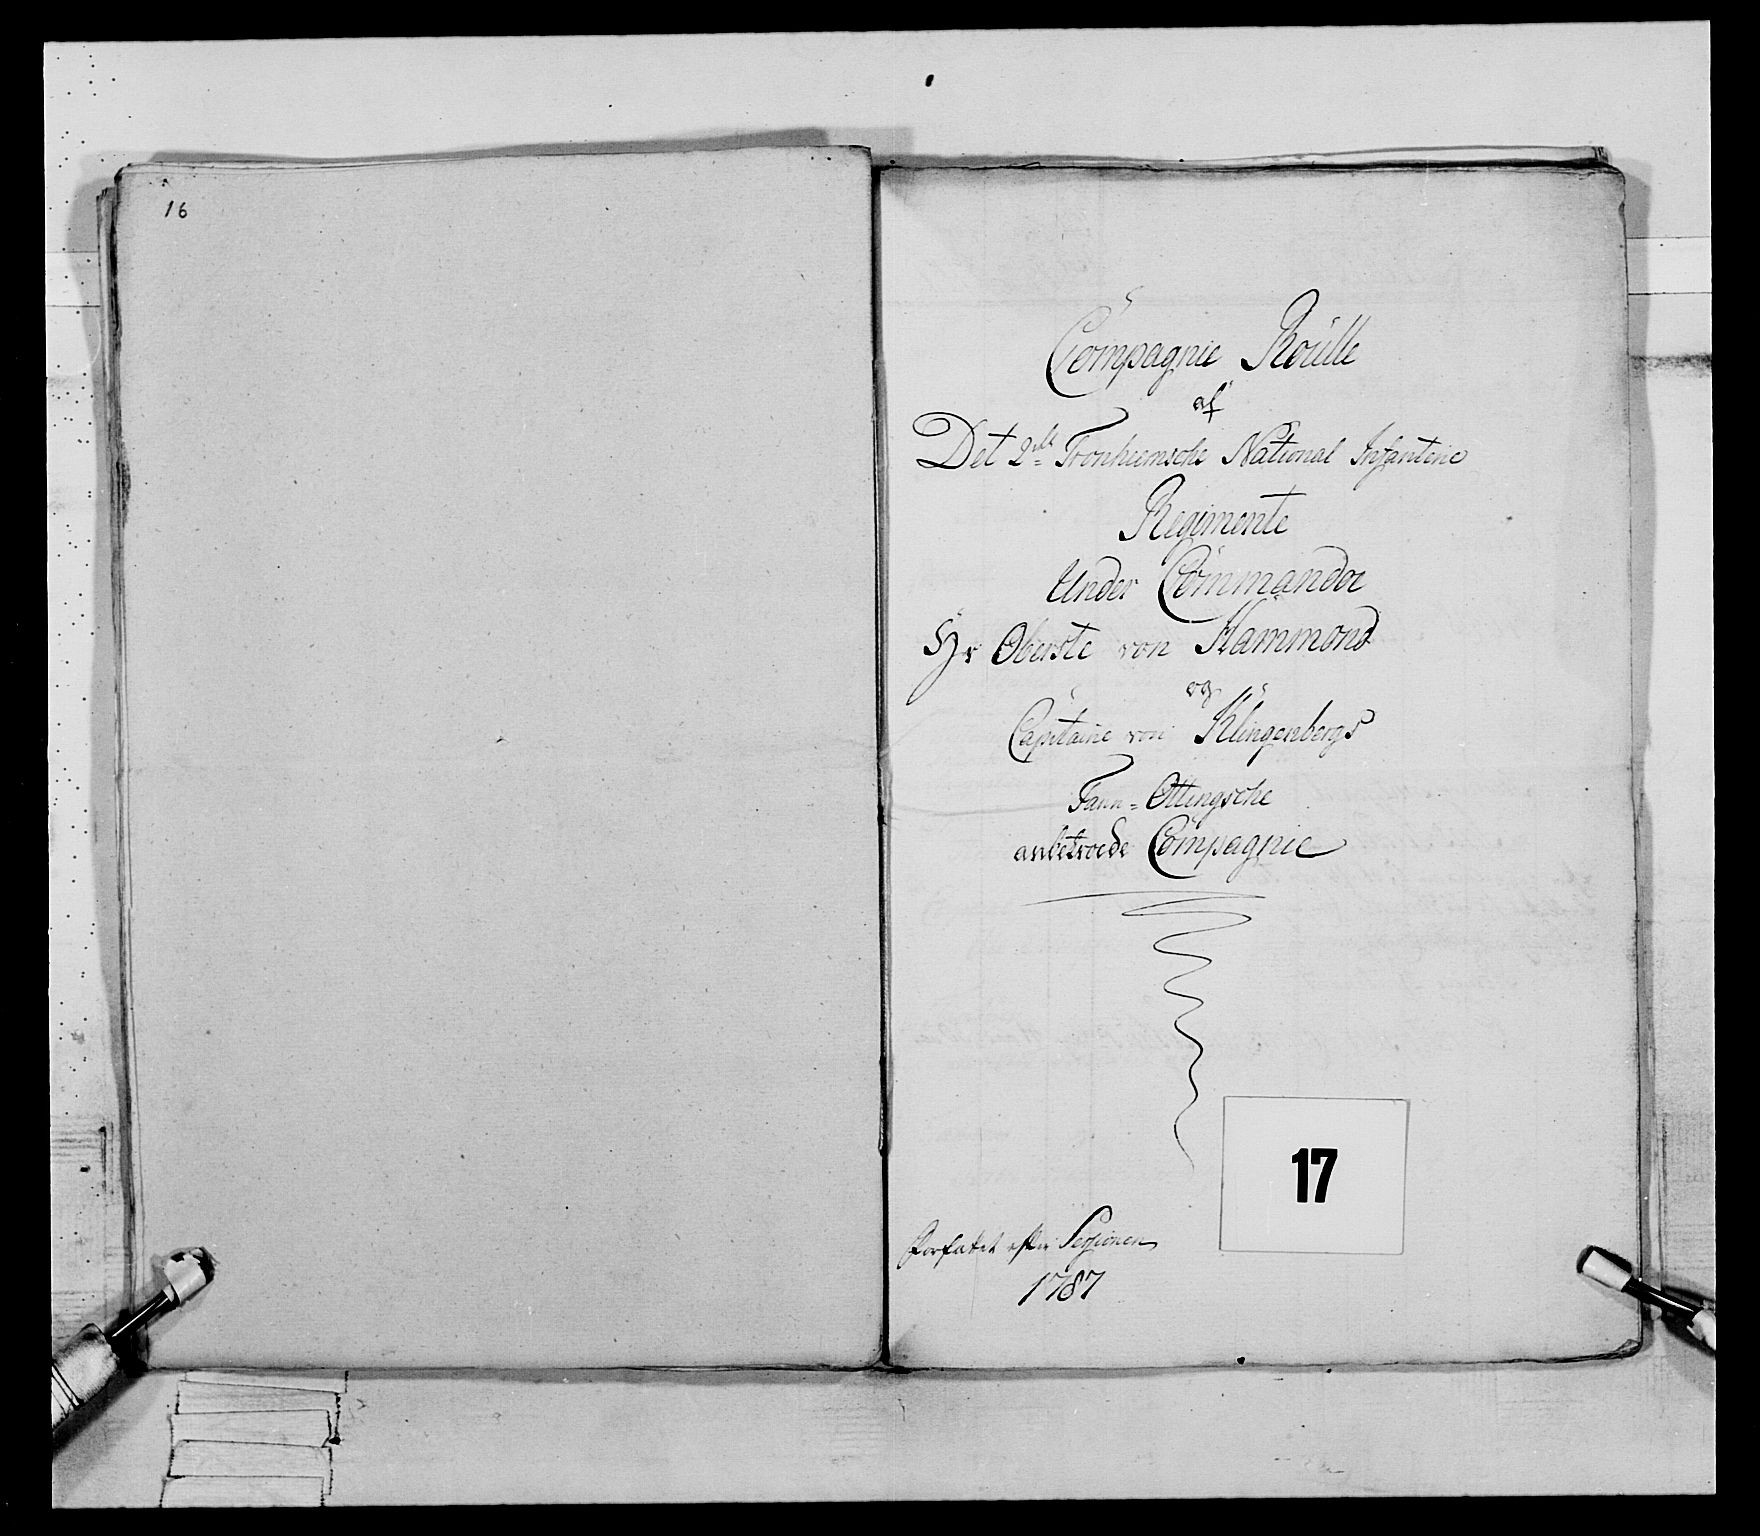 16
Compagnie Roulle
af
Det 2det Tronhiemsche National Infanterie
Regimente
Under Commando
Hr Oberste von Hammond
og
Capitaine von Klingenbergs
Tann=Ottingsche
anbetroede Compagnie
17
Forfatet efter Sessionen
1787